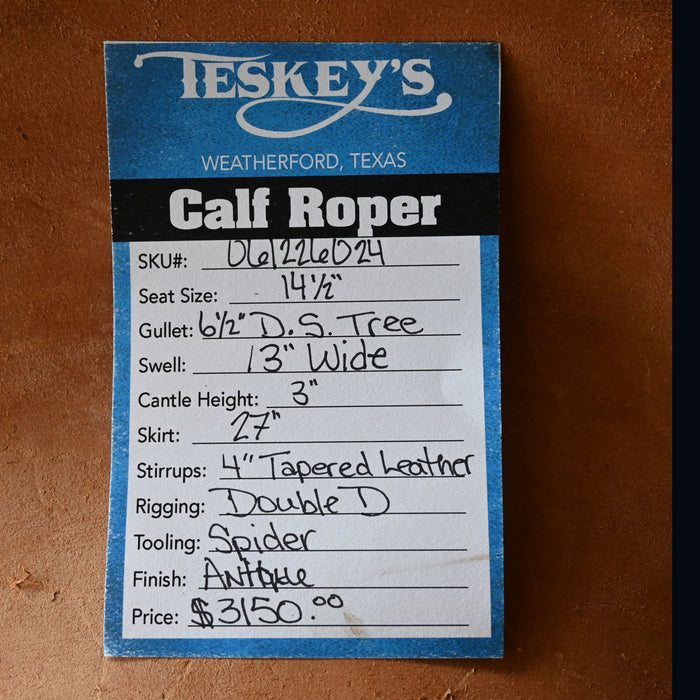 TESKEY'S
WEATHERFORD, TEXAS
Calf Roper
SKU#: 061226024
Seat Size: 14½"
Gullet: 6½" D.S. Tree
Swell: 13" Wide
Cantle Height: 3"
Skirt: 27"
Stirrups: 4" Tapered Leather
Rigging: Double D
Tooling: Spider
Finish: Antique
Price: $3150.00